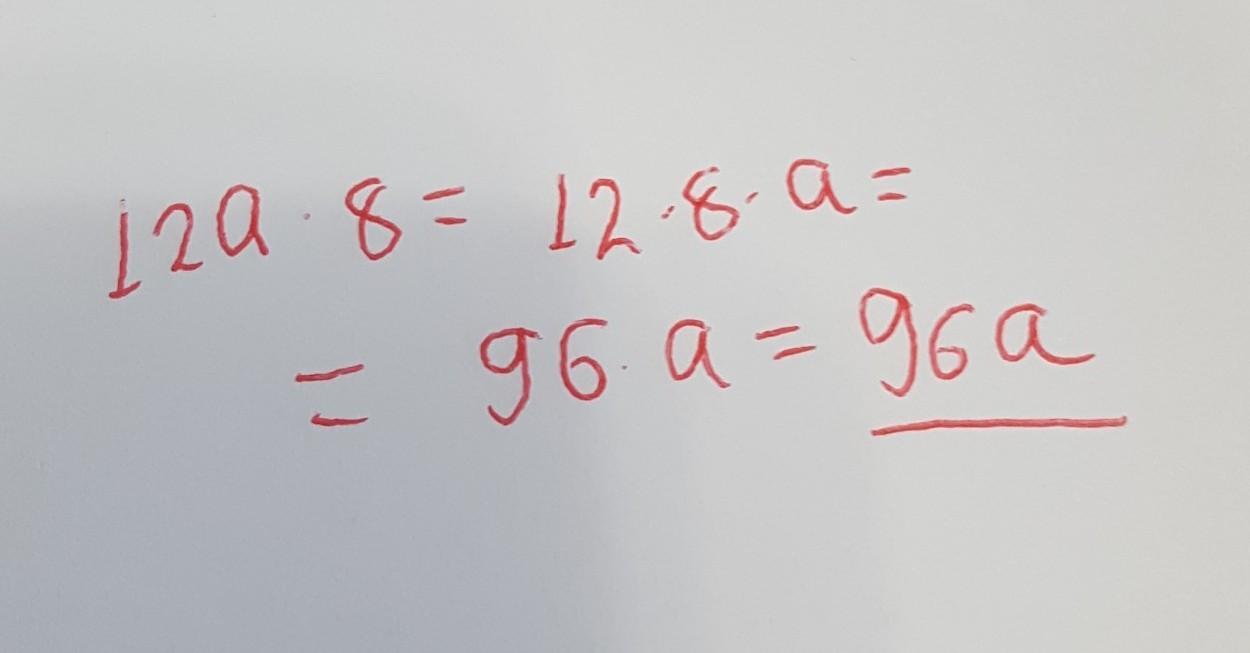 12a · 8 = 12 · 8 · a =
= 96 · a = 96a